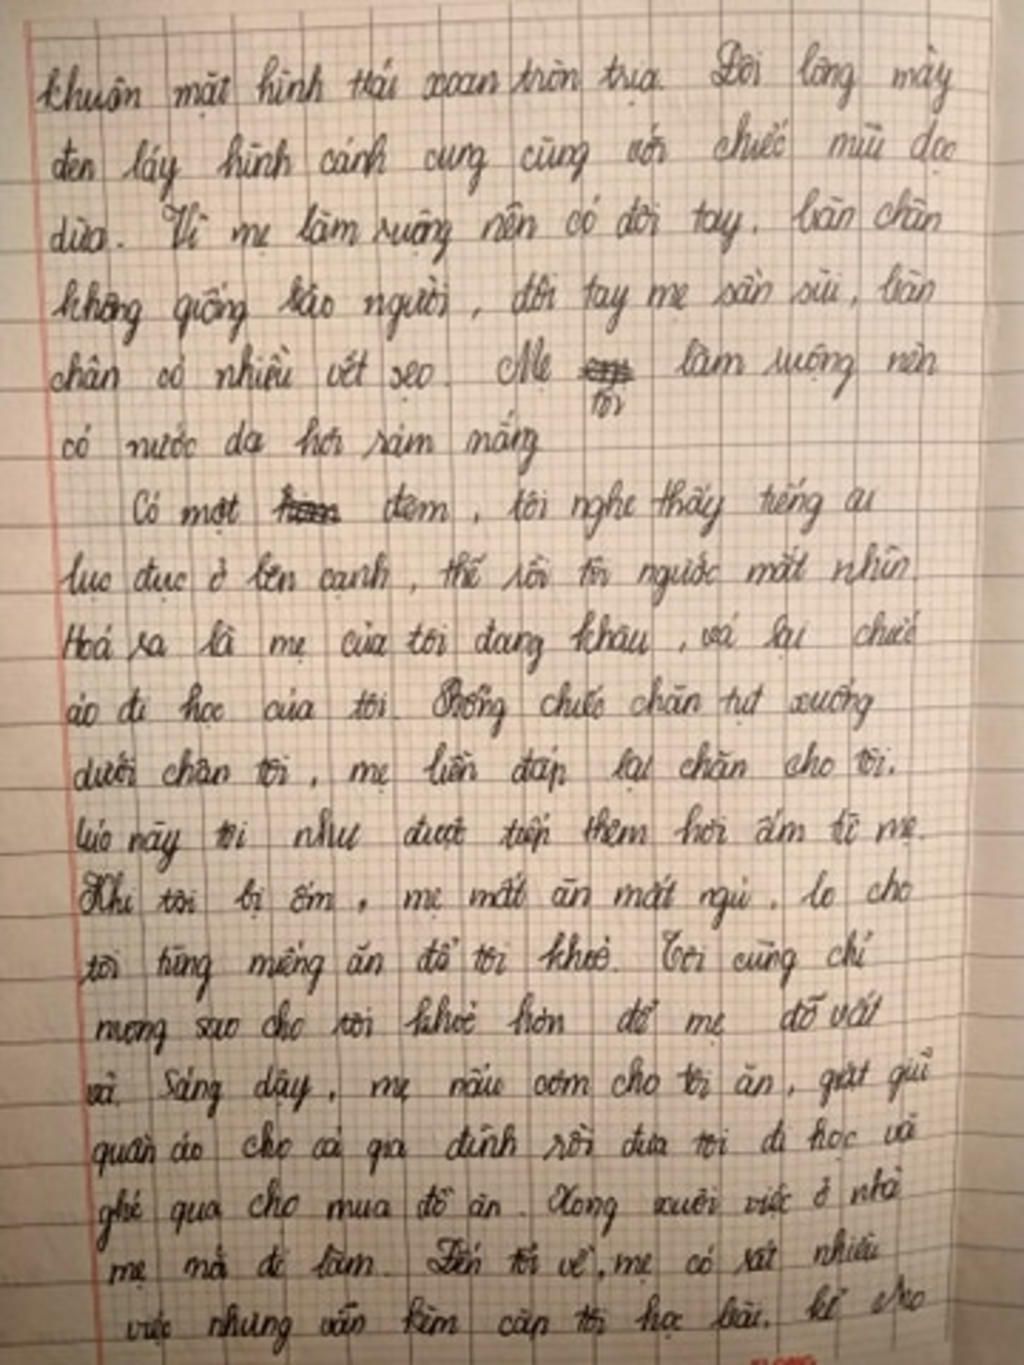 khuôn mặt hình trái xoan tròn trịa. Đôi lông mày
đen láy hình cánh cung cùng với chiếc mũi dọc
dừa. Vì mẹ làm ruộng nên có đôi tay, bàn chân
không giống bao người, đôi tay mẹ sần sùi, bàn
chân có nhiều vết sẹo. Mẹ tôi làm ruộng nên
có nước da hơi rám nắng
Có một đêm, tôi nghe thấy tiếng ai
lục đục ở bên cạnh, thế rồi tôi ngước mắt nhìn.
Hoá ra là mẹ của tôi đang khâu, vá lại chiếc
áo đi học của tôi. Bỗng chiếc chăn tụt xuống
dưới chân tôi, mẹ liền đáp lại chăn cho tôi.
Lúc này tôi như được tiếp thêm hơi ấm từ mẹ.
Khi tôi bị ốm, mẹ mất ăn mất ngủ, lo cho
tôi từng miếng ăn để tôi khoẻ. Tôi cũng chỉ
mong sao cho tôi khoẻ hơn để mẹ đỡ vất
vả. Sáng dậy, mẹ nấu cơm cho tôi ăn, giặt giũ
quần áo cho cả gia đình rồi đưa tôi đi học và
ghé qua chợ mua đồ ăn. Xong xuôi việc ở nhà
mẹ mới đi làm. Đến tối về, mẹ có rất nhiều
việc nhưng vẫn kèm cặp tôi học bài, kể cho